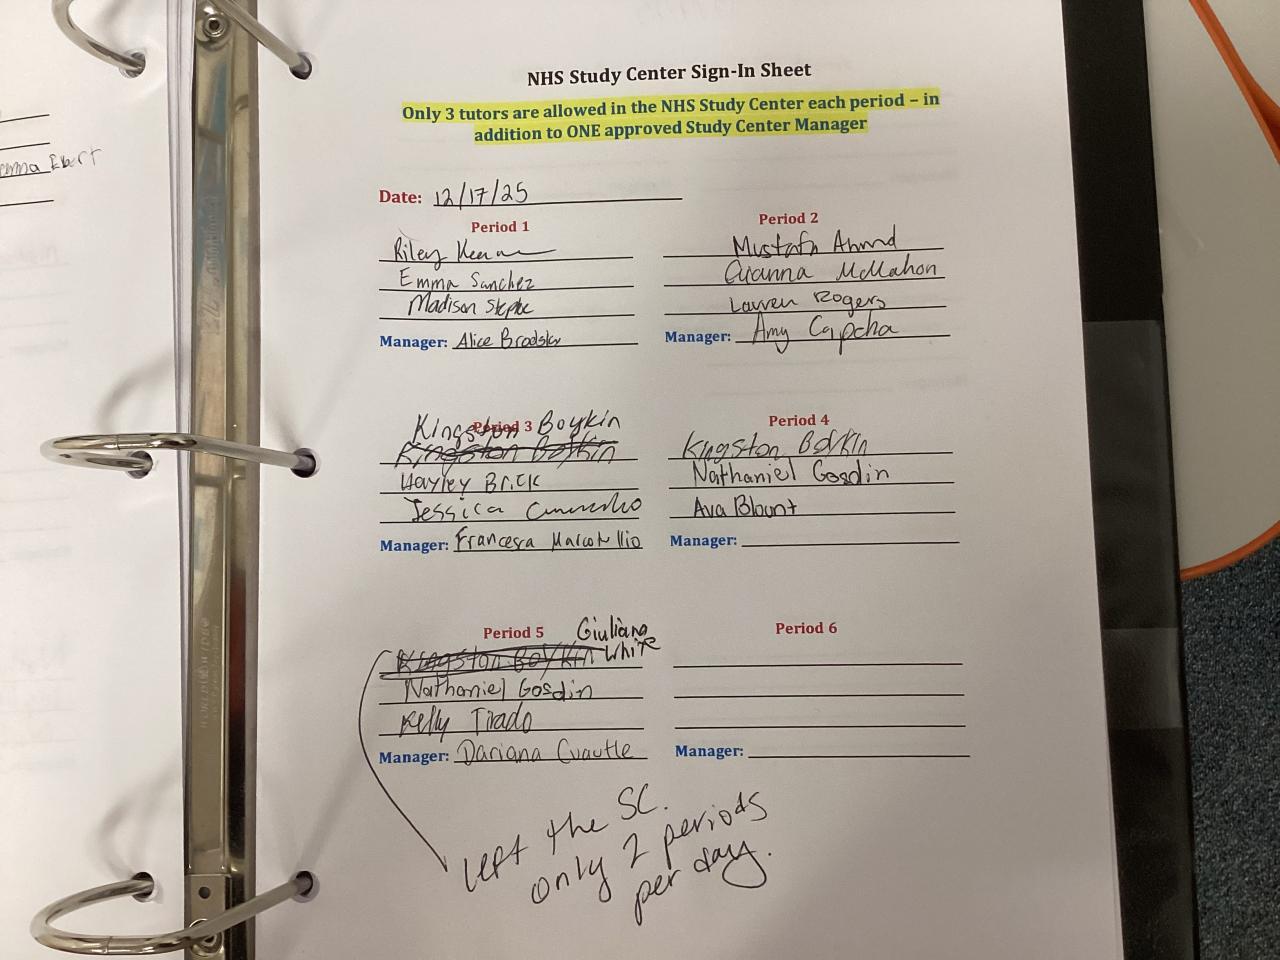 NHS Study Center Sign-In Sheet
Only 3 tutors are allowed in the NHS Study Center each period – in
addition to ONE approved Study Center Manager
Date: 12/17/25
Period 1
Riley
Emma Sanchez
Madison
Manager: Alice
Period 2
Mustafa Ahmad
Gianna McMahon
Lauren Rogers
Manager: Amy Capcha
Period 3
Kingston Boykin
Kingston Boykin
Hayley Brick
Jessica
Manager: Francesca
Period 4
Kingston Boykin
Nathaniel Gosdin
Ava Blount
Manager:
Period 5
Giuliana
White
Kingston Boykin
Nathaniel Gosdin
Kelly Tirado
Manager: Dariana Cuautle
Period 6
Manager:
left the SC.
only 2 periods
per day.
Ebert